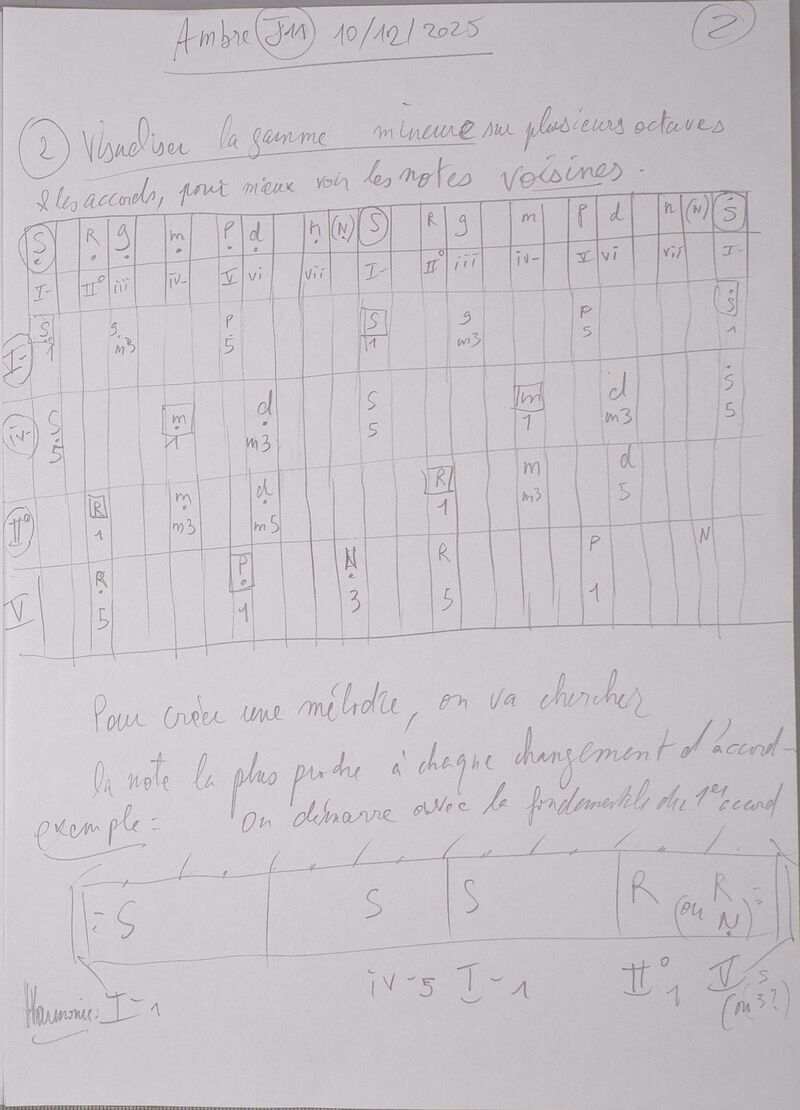 Ambre J11 10/12/2025 2
2 Visualiser la gamme mineure sur plusieurs octaves
& les accords, pour mieux voir les notes voisines.
S R g m P d n (N) S R g m p d n (N) S
I- II° iii iv- V vi vii I- II° iii iv- V vi vii I-
I- S g P S g P S
1 m3 5 1 m3 5 1
iv- S m d S m d S
5 1 m3 5 1 m3 5
II° R m d R m d
1 m3 m5 1 m3 5
V R P N R P N
5 1 3 5 1
Pour créer une mélodie, on va chercher
la note la plus proche à chaque changement d'accord.
exemple: On démarre avec la fondamentale du 1er accord
S S S R (ou R N)
Harmonie: I-1 iv-5 I-1 II°1 V5
(ou 3?)